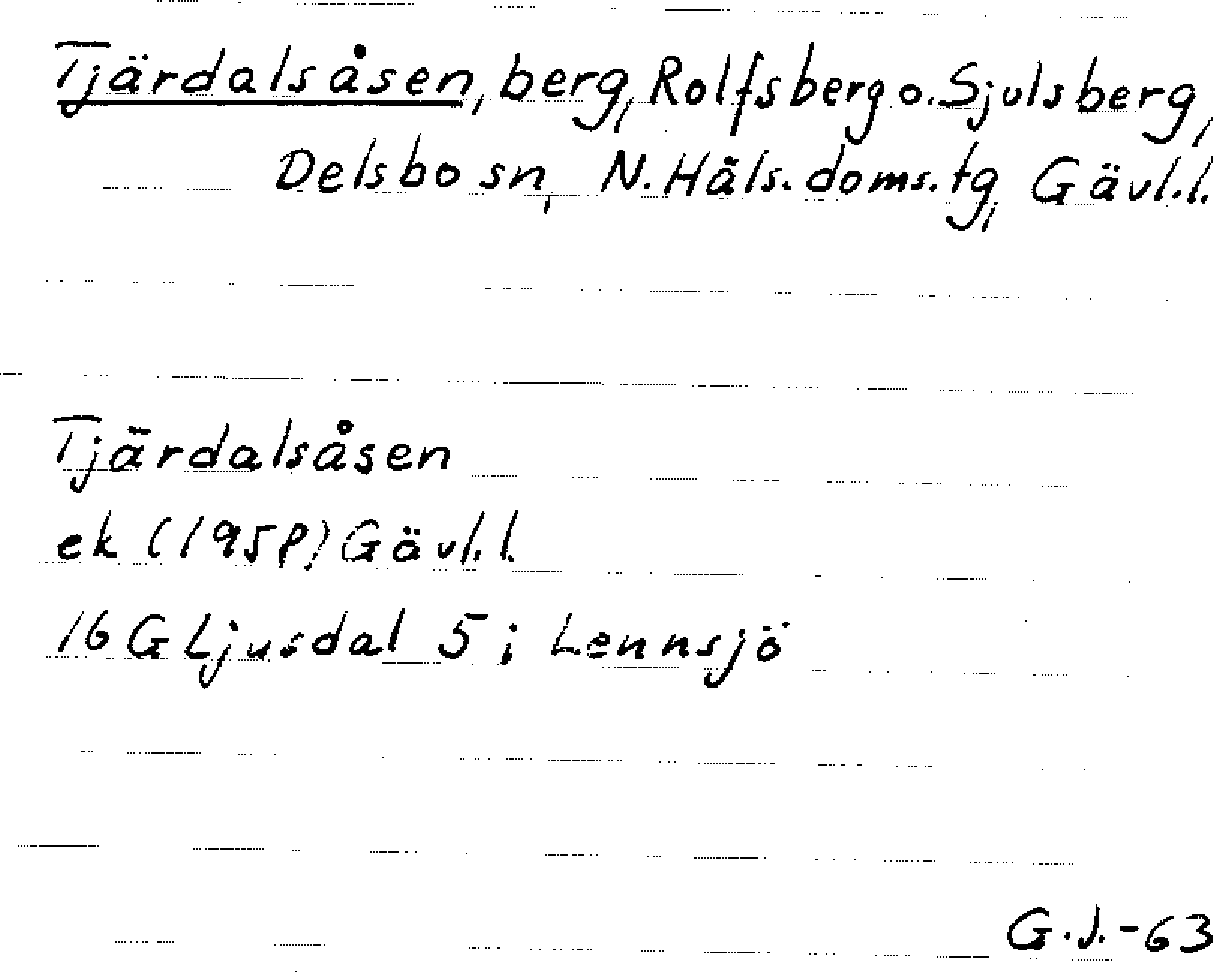 Tjärdalsåsen, berg, Rolfsberg o. Sjulsberg,
Delsbo sn, N. Häls. doms. tg, Gävl.l.
Tjärdalsåsen
ek (1958) Gävl.l.
16 G Ljusdal 5 i Lennsjö
G.J.-63